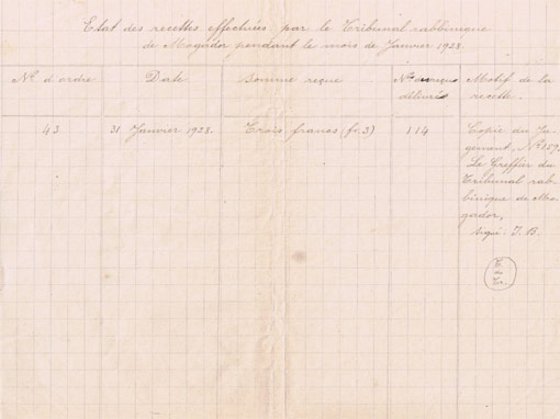 Etat des recettes effectuées par le Tribunal rabbinique
de Mogador pendant le mois de Janvier 1928.
No. d'ordre
Date
Somme reçue
No. reçus
délivrés
Motif de la
recette.
43
31 Janvier 1928.
Trois francs (fr.3)
114
Copie du Ju-
gement, No. 159.
Le Greffier du
Tribunal rab-
binique de Mo-
gador,
signé: J. B.